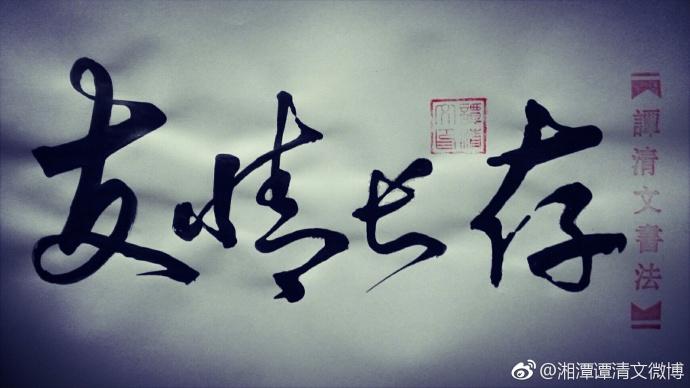 友情长存
譚清文書法
@湘潭谭清文微博